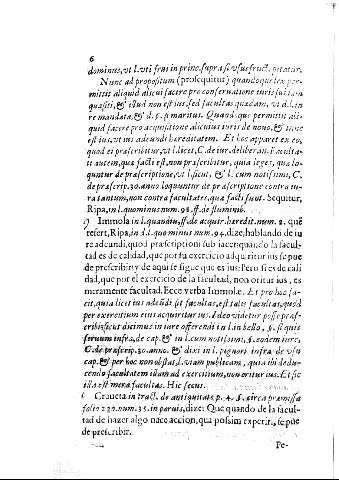 6
dominus, vt l. vti frui in princ. supra si vsusfruct. petatur.
Nunc ad propositum (prosequitur) quandoque lex per-
mittit aliquid alicui facere pro conseruatione iuris sui iam
quæsiti, & illud non est ius, sed facultas quædam, vt d.l. in
re mandata, & d. §. maritus. Quandoque permittit ali-
quid facere pro acquisitione alicuius iuris de nouo, & tunc
est ius, vt ius adeundi hereditatem. Et hoc apparet ex eo,
quod ei præscribitur, vt l. licet, C. de iur. deliberan. Faculta-
ti autem, quæ facti est, non præscribitur, quia leges, quæ lo-
quuntur de præscriptione, vt l. sicut, & l. cum notissimi, C.
de præscrip. 30. anno. loquuntur de præscriptione contra iu-
ra tantum, non contra facultates, quæ facti sunt. Sequitur,
Ripa, in l. quominus num. 98. ff. de fluminib.
Immola in l. quandiu, ff. de acquir. heredit. num. 2. què
refert, Ripa, in d. l. quo minus num. 94. dize, hablando de iu
re adeundi, quod præscriptioni subiaceř quando la facul-
tad es de calidad, que por su exercicio adquiritur ius se pue
de prescribir, y de aqui se sigue que es ius: Pero si es de cali
dad, que por el exercicio de la facultad, non oritur ius, es
meramente facultad. Ecce verba Immolæ. Et pro hoc fa-
cit, quia licet ius adeundi sit facultas, est talis facultas, quod
per exercitium eius acquiritur ius. Ideo videtur posse præs-
cribi sicut dicimus in iure offerendi in l. in bello, §. si quis
seruum infra, de cap. & in l. cum notissimi, §. eodem iure,
C. de præscrip. 30. anno. & dixi in l. pignori infra de vsu
cap. & per hoc non obstat, l. viam publicam, quia ibi dicendo
cendo facultatem illam ad exercitium, non oritur ius. Et sic
illa est mera facultas. Hic secus.
Craueta in tract. de antiquitate p. 4. §. circa præmissa
folio 220. num. 35. in paruis, dize: Que quando de la facul-
tad de hazer algo nace accion, qua possim experiri, se pue
de prescribir.
Pe-